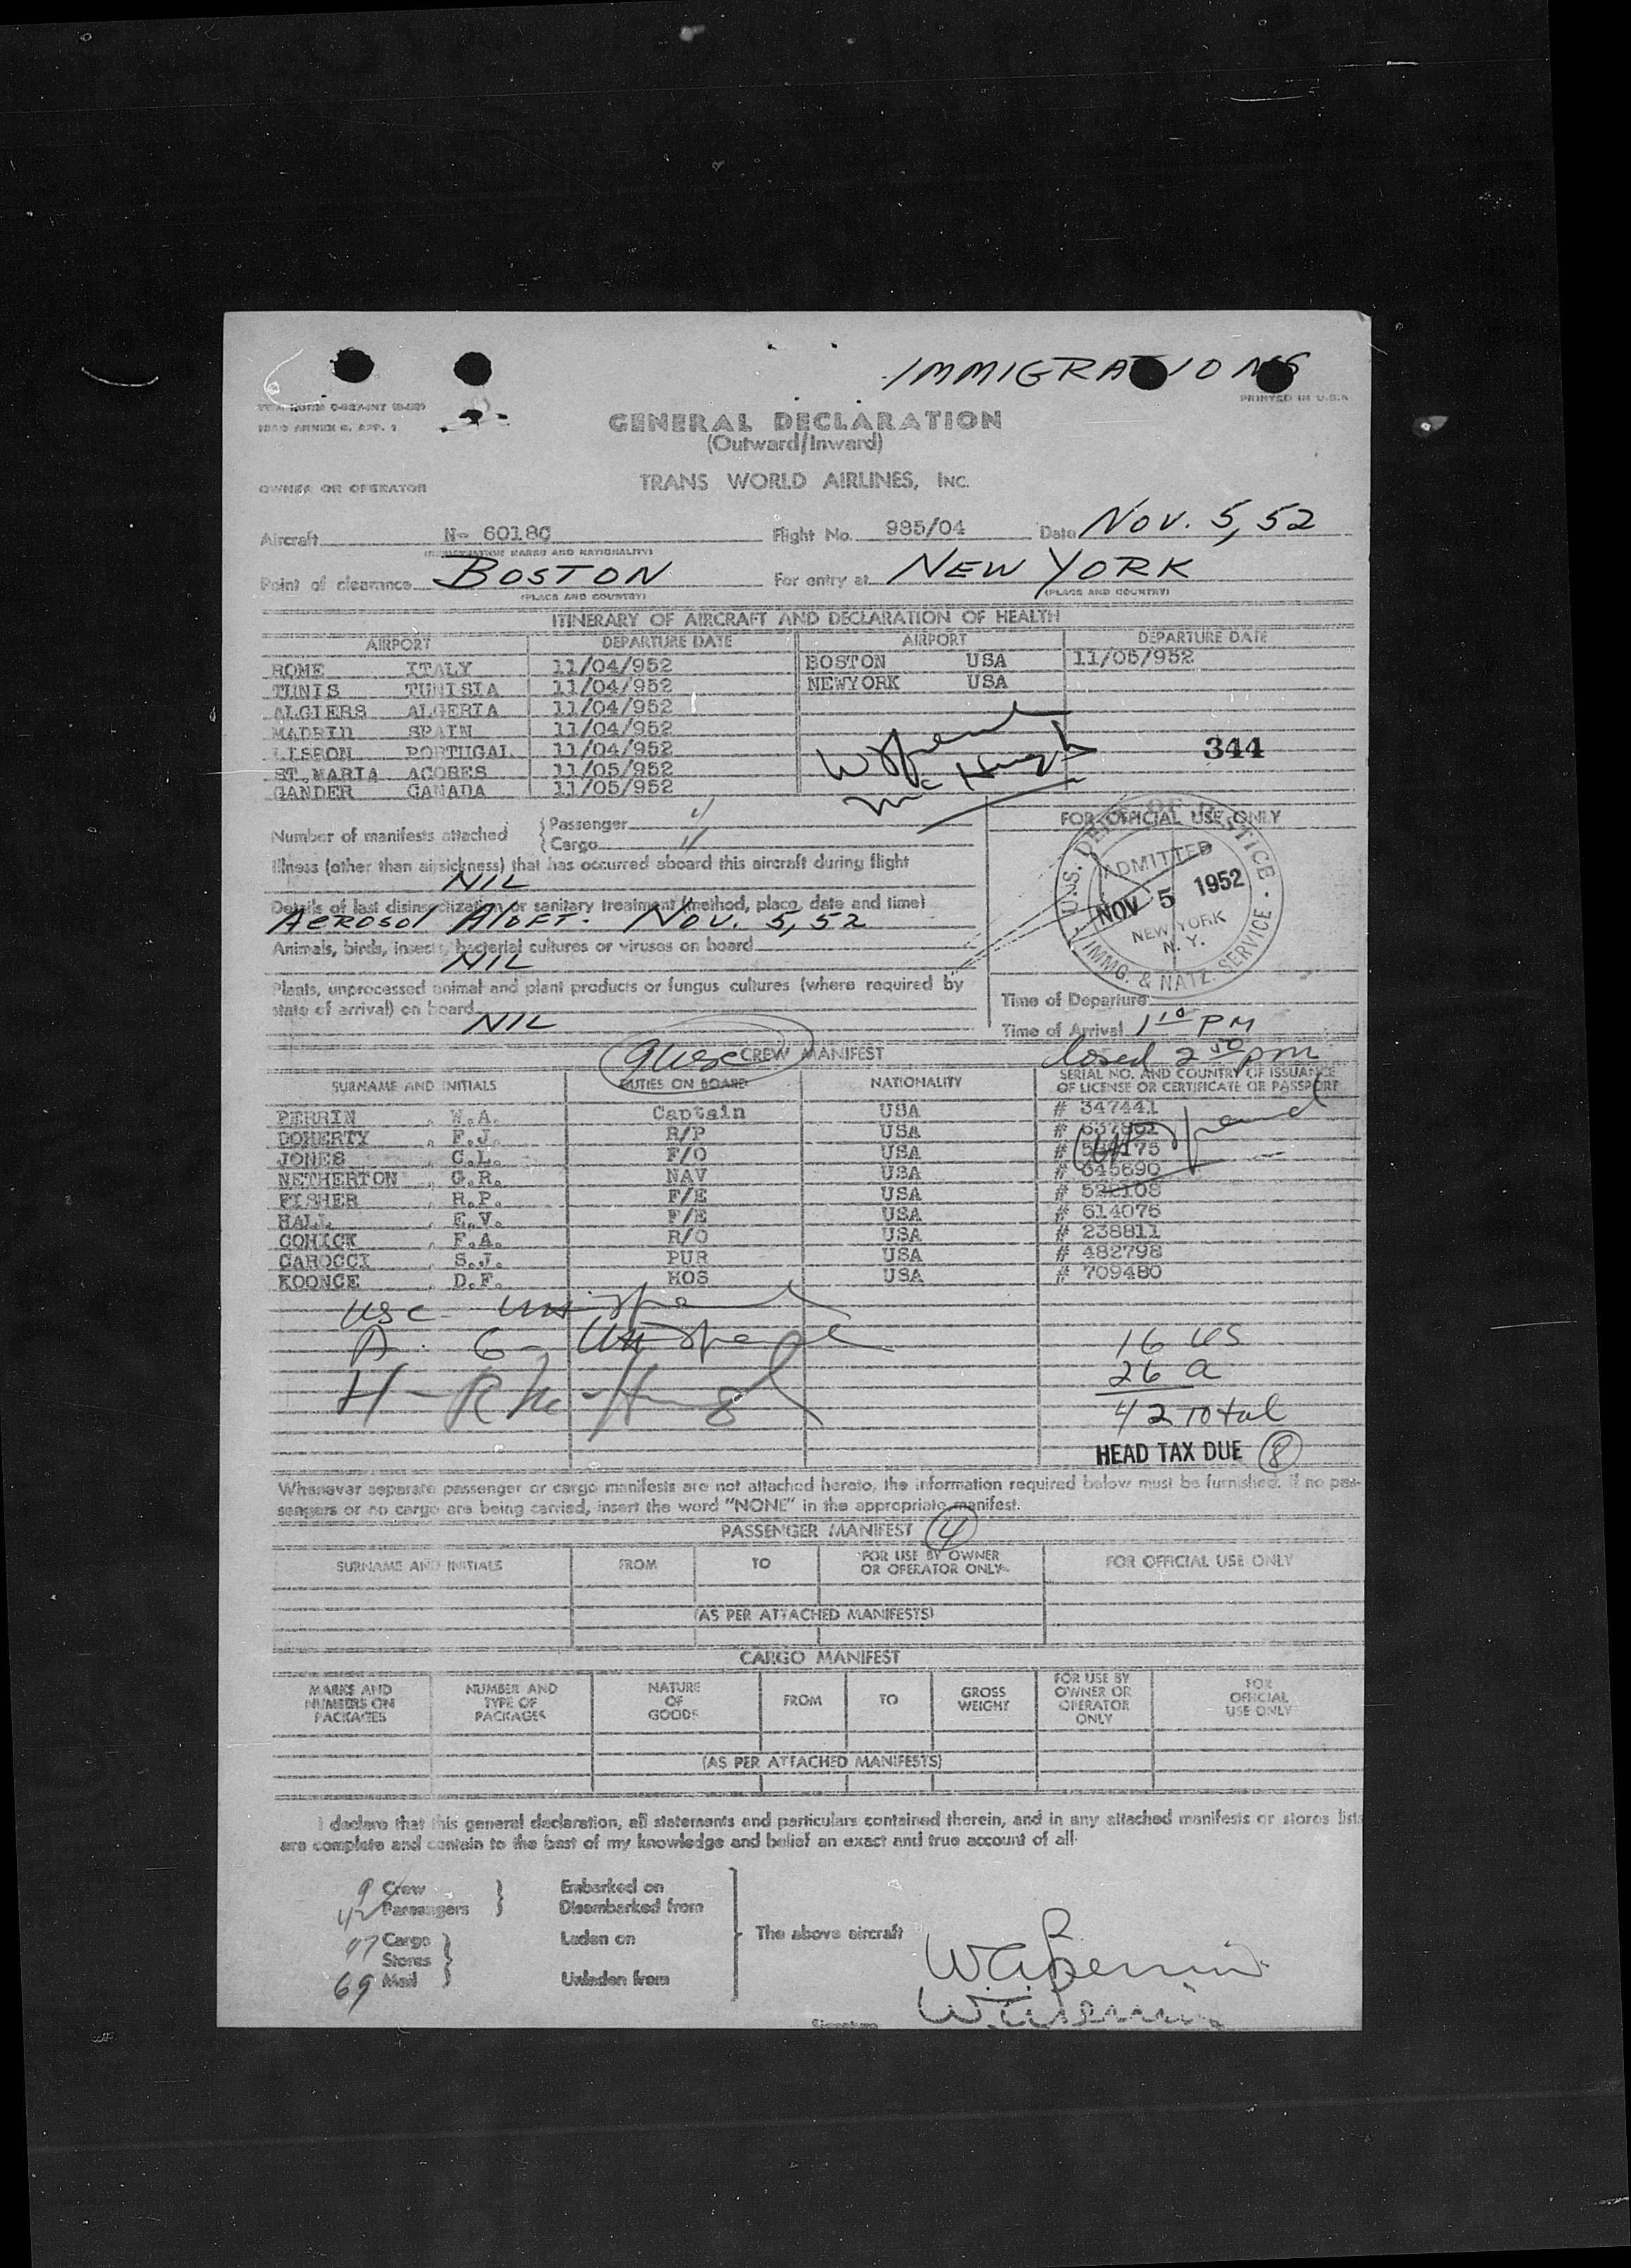 IMMIGRATIONS
PRINTED IN U.S.A.
GENERAL DECLARATION
(Outward/Inward)
OWNER OR OPERATOR TRANS WORLD AIRLINES, INC.
Aircraft N- 6018C Flight No. 985/04 Date Nov. 5, 52
(REGISTRATION MARKS AND NATIONALITY)
Point of clearance BOSTON For entry at NEW YORK
(PLACE AND COUNTRY) (PLACE AND COUNTRY)
ITINERARY OF AIRCRAFT AND DECLARATION OF HEALTH
AIRPORT DEPARTURE DATE AIRPORT DEPARTURE DATE
ROME ITALY 11/04/952 BOSTON USA 11/05/952
TUNIS TUNISIA 11/04/952 NEWYORK USA
ALGIERS ALGERIA 11/04/952
MADRID SPAIN 11/04/952
LISBON PORTUGAL 11/04/952 344
ST.MARIA ACORES 11/05/952
GANDER CANADA 11/05/952
Mc Hugh
Number of manifests attached { Passenger 4
{ Cargo 4
FOR OFFICIAL USE ONLY
U.S. DEPT. OF JUSTICE
ADMITTED
NOV 5 1952
NEW YORK
N. Y.
IMMG. & NATZ. SERVICE
Illness (other than airsickness) that has occurred aboard this aircraft during flight
NIL
Details of last disinsectization or sanitary treatment (method, place, date and time)
AEROSOL ALOFT. Nov. 5, 52
Animals, birds, insects, bacterial cultures or viruses on board
NIL
Plants, unprocessed animal and plant products or fungus cultures (where required by
state of arrival) on board
NIL
Time of Departure
Time of Arrival 1 10 PM
closed 2 50 pm
9 usc CREW MANIFEST
SURNAME AND INITIALS DUTIES ON BOARD NATIONALITY SERIAL NO. AND COUNTRY OF ISSUANCE
OF LICENSE OR CERTIFICATE OR PASSPORT
PERRIN , W.A. Captain USA # 347441
DOHERTY , F.J. R/P USA #
JONES , C.L. F/O USA #
NETHERTON , G.R. NAV USA # 645690
FISHER , R.P. F/E USA #
HALL , E.V. F/E USA # 614076
COHICK , F.A. R/O USA # 238811
CAROCCI , S.J. PUR USA # 482798
KOONCE , D.F. HOS USA # 709480
usc -
A -
H -
16 US
26 a
42 Total
HEAD TAX DUE 8
Whenever separate passenger or cargo manifests are not attached hereto, the information required below must be furnished. If no pas-
sengers or no cargo are being carried, insert the word "NONE" in the appropriate manifest.
PASSENGER MANIFEST 4
SURNAME AND INITIALS FROM TO FOR USE BY OWNER
OR OPERATOR ONLY FOR OFFICIAL USE ONLY
(AS PER ATTACHED MANIFESTS)
CARGO MANIFEST
MARKS AND
NUMBERS ON
PACKAGES
NUMBER AND
TYPE OF
PACKAGES
NATURE
OF
GOODS
FROM
TO
GROSS
WEIGHT
FOR USE BY
OWNER OR
OPERATOR
ONLY
FOR
OFFICIAL
USE ONLY
(AS PER ATTACHED MANIFESTS)
I declare that this general declaration, all statements and particulars contained therein, and in any attached manifests or stores lists
are complete and contain to the best of my knowledge and belief an exact and true account of all
9 Crew } Embarked on
42 Passengers } Disembarked from
47 Cargo } Laden on The above aircraft
Stores
69 Mail } Unladen from
W.A. Perrin
W.A. Perrin
Signature